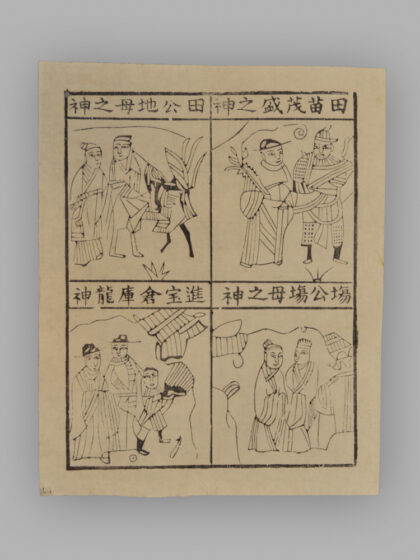 田苗茂盛之神
田公地母之神
塲公塲母之神
進宝倉庫龍神